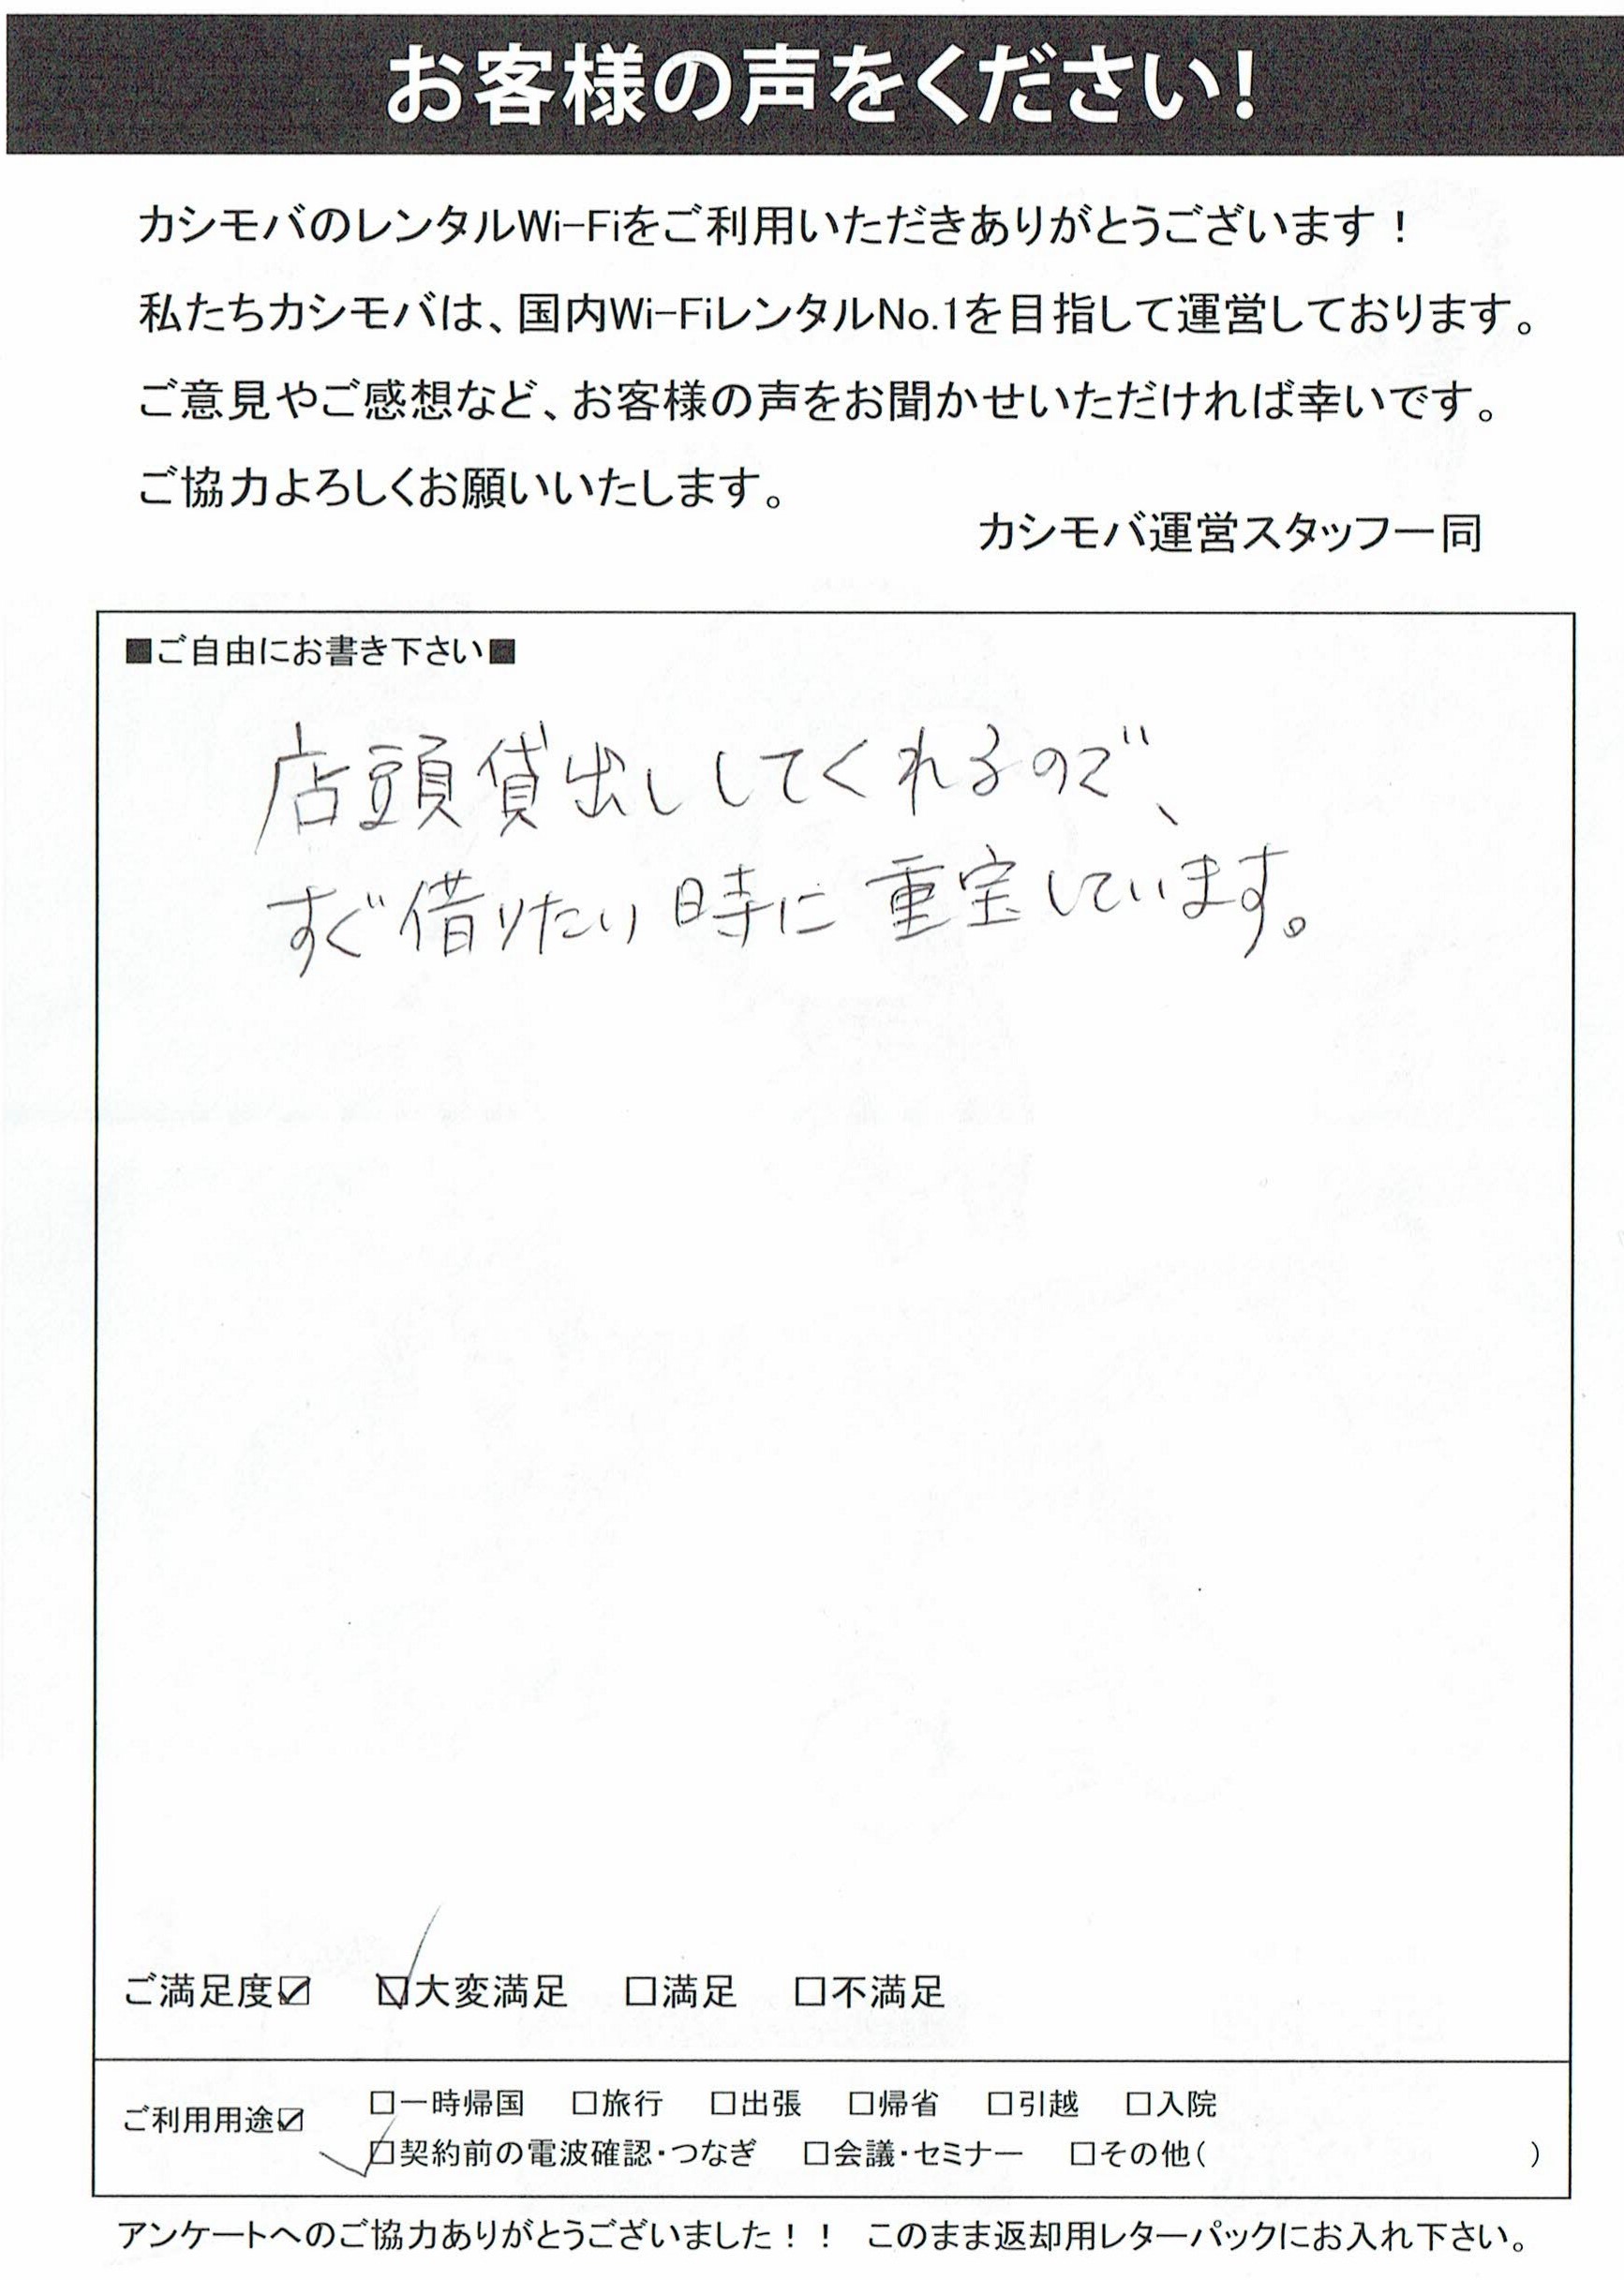 お客様の声をください!
カシモバのレンタルWi-Fiをご利用いただきありがとうございます！
私たちカシモバは、国内Wi-FiレンタルNo.1を目指して運営しております。
ご意見やご感想など、お客様の声をお聞かせいただければ幸いです。
ご協力よろしくお願いいたします。
カシモバ運営スタッフ一同
■ご自由にお書き下さい■
店頭貸出ししてくれるので、
すぐ借りたい時に重宝しています。
ご満足度☑ ☑大変満足 □満足 □不満足
ご利用用途☑ □一時帰国 □旅行 □出張 □帰省 □引越 □入院
☑契約前の電波確認・つなぎ □会議・セミナー □その他( )
アンケートへのご協力ありがとうございました！！ このまま返却用レターパックにお入れ下さい。